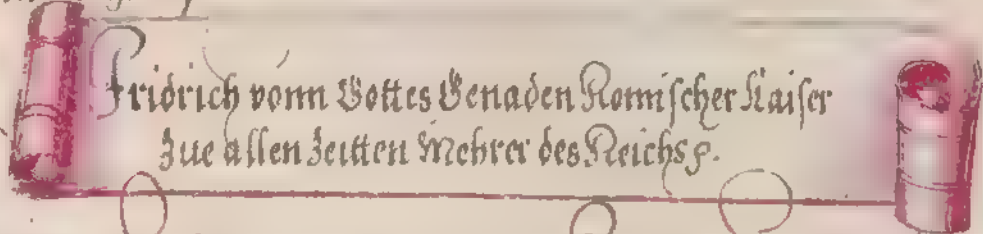 Fridrich vonn Gottes Genaden Romischer Kaiser
Zue allen Zeitten Mehrer des Reichs